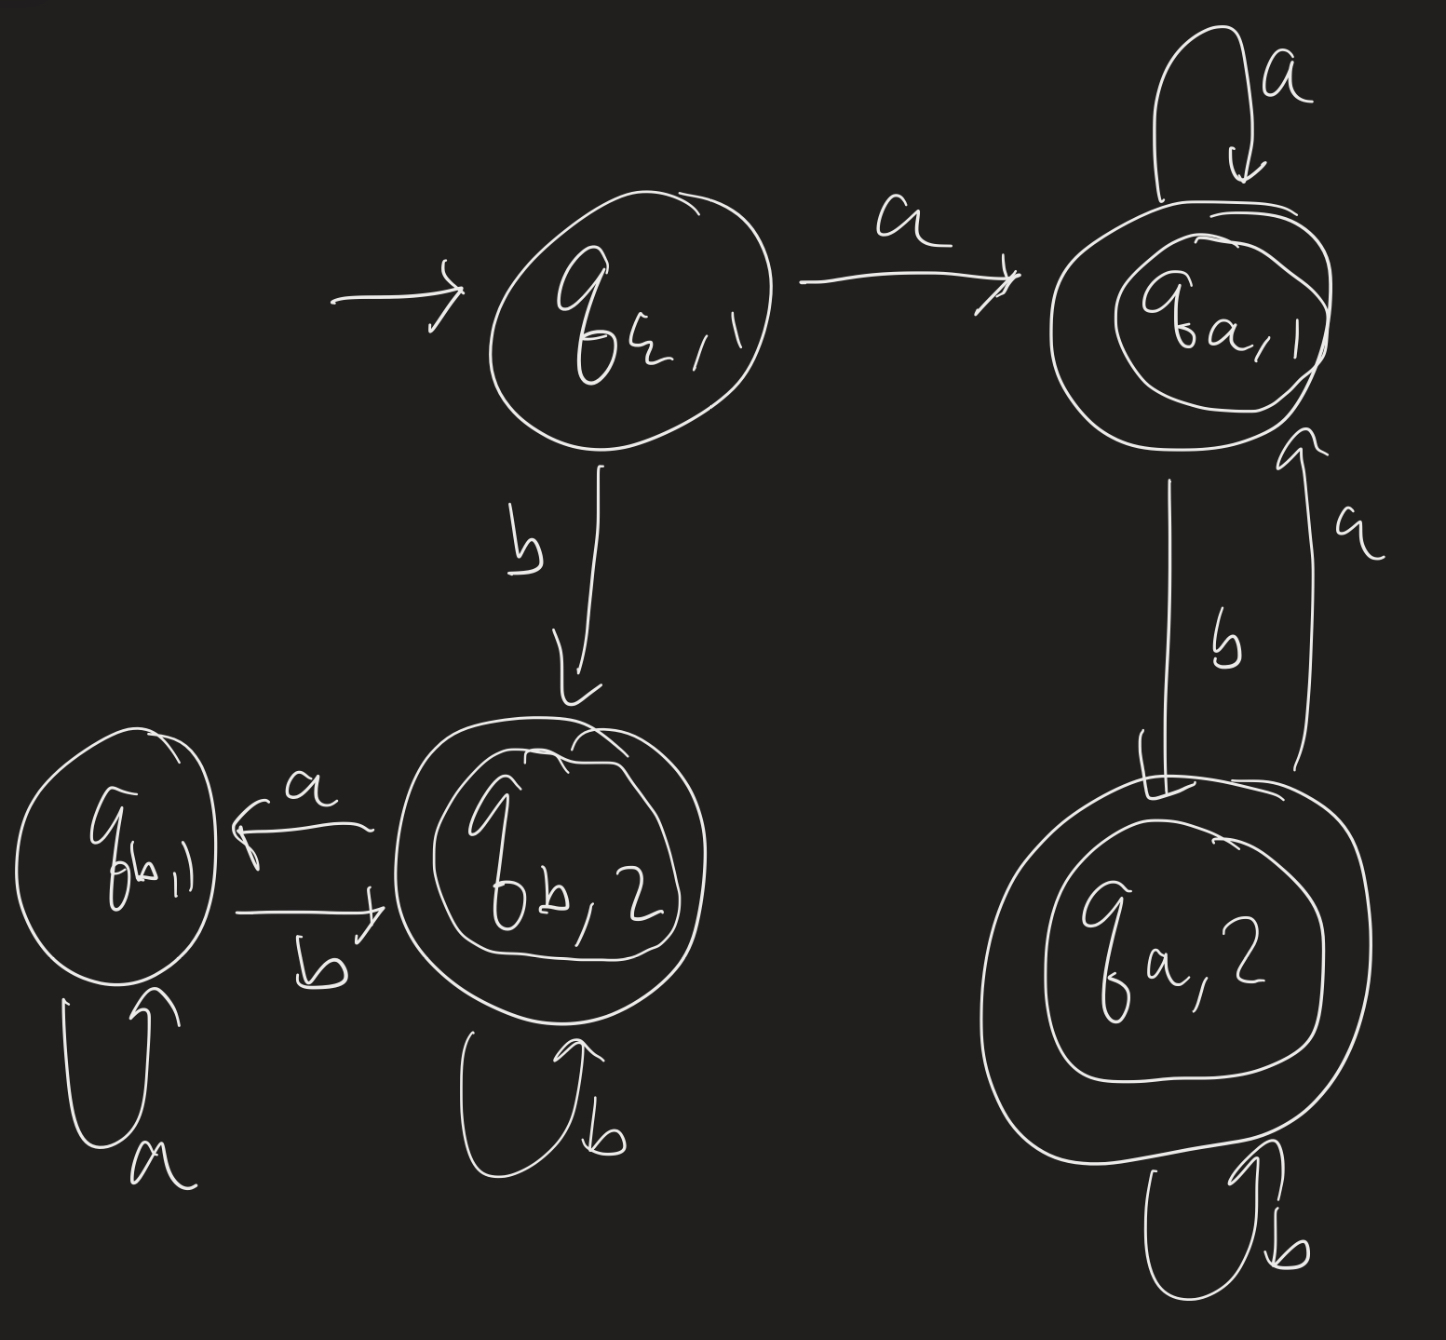 a
a
qε,1
qa,1
b
a
b
a
qb,1
qb,2
b
qa,2
a
b
b